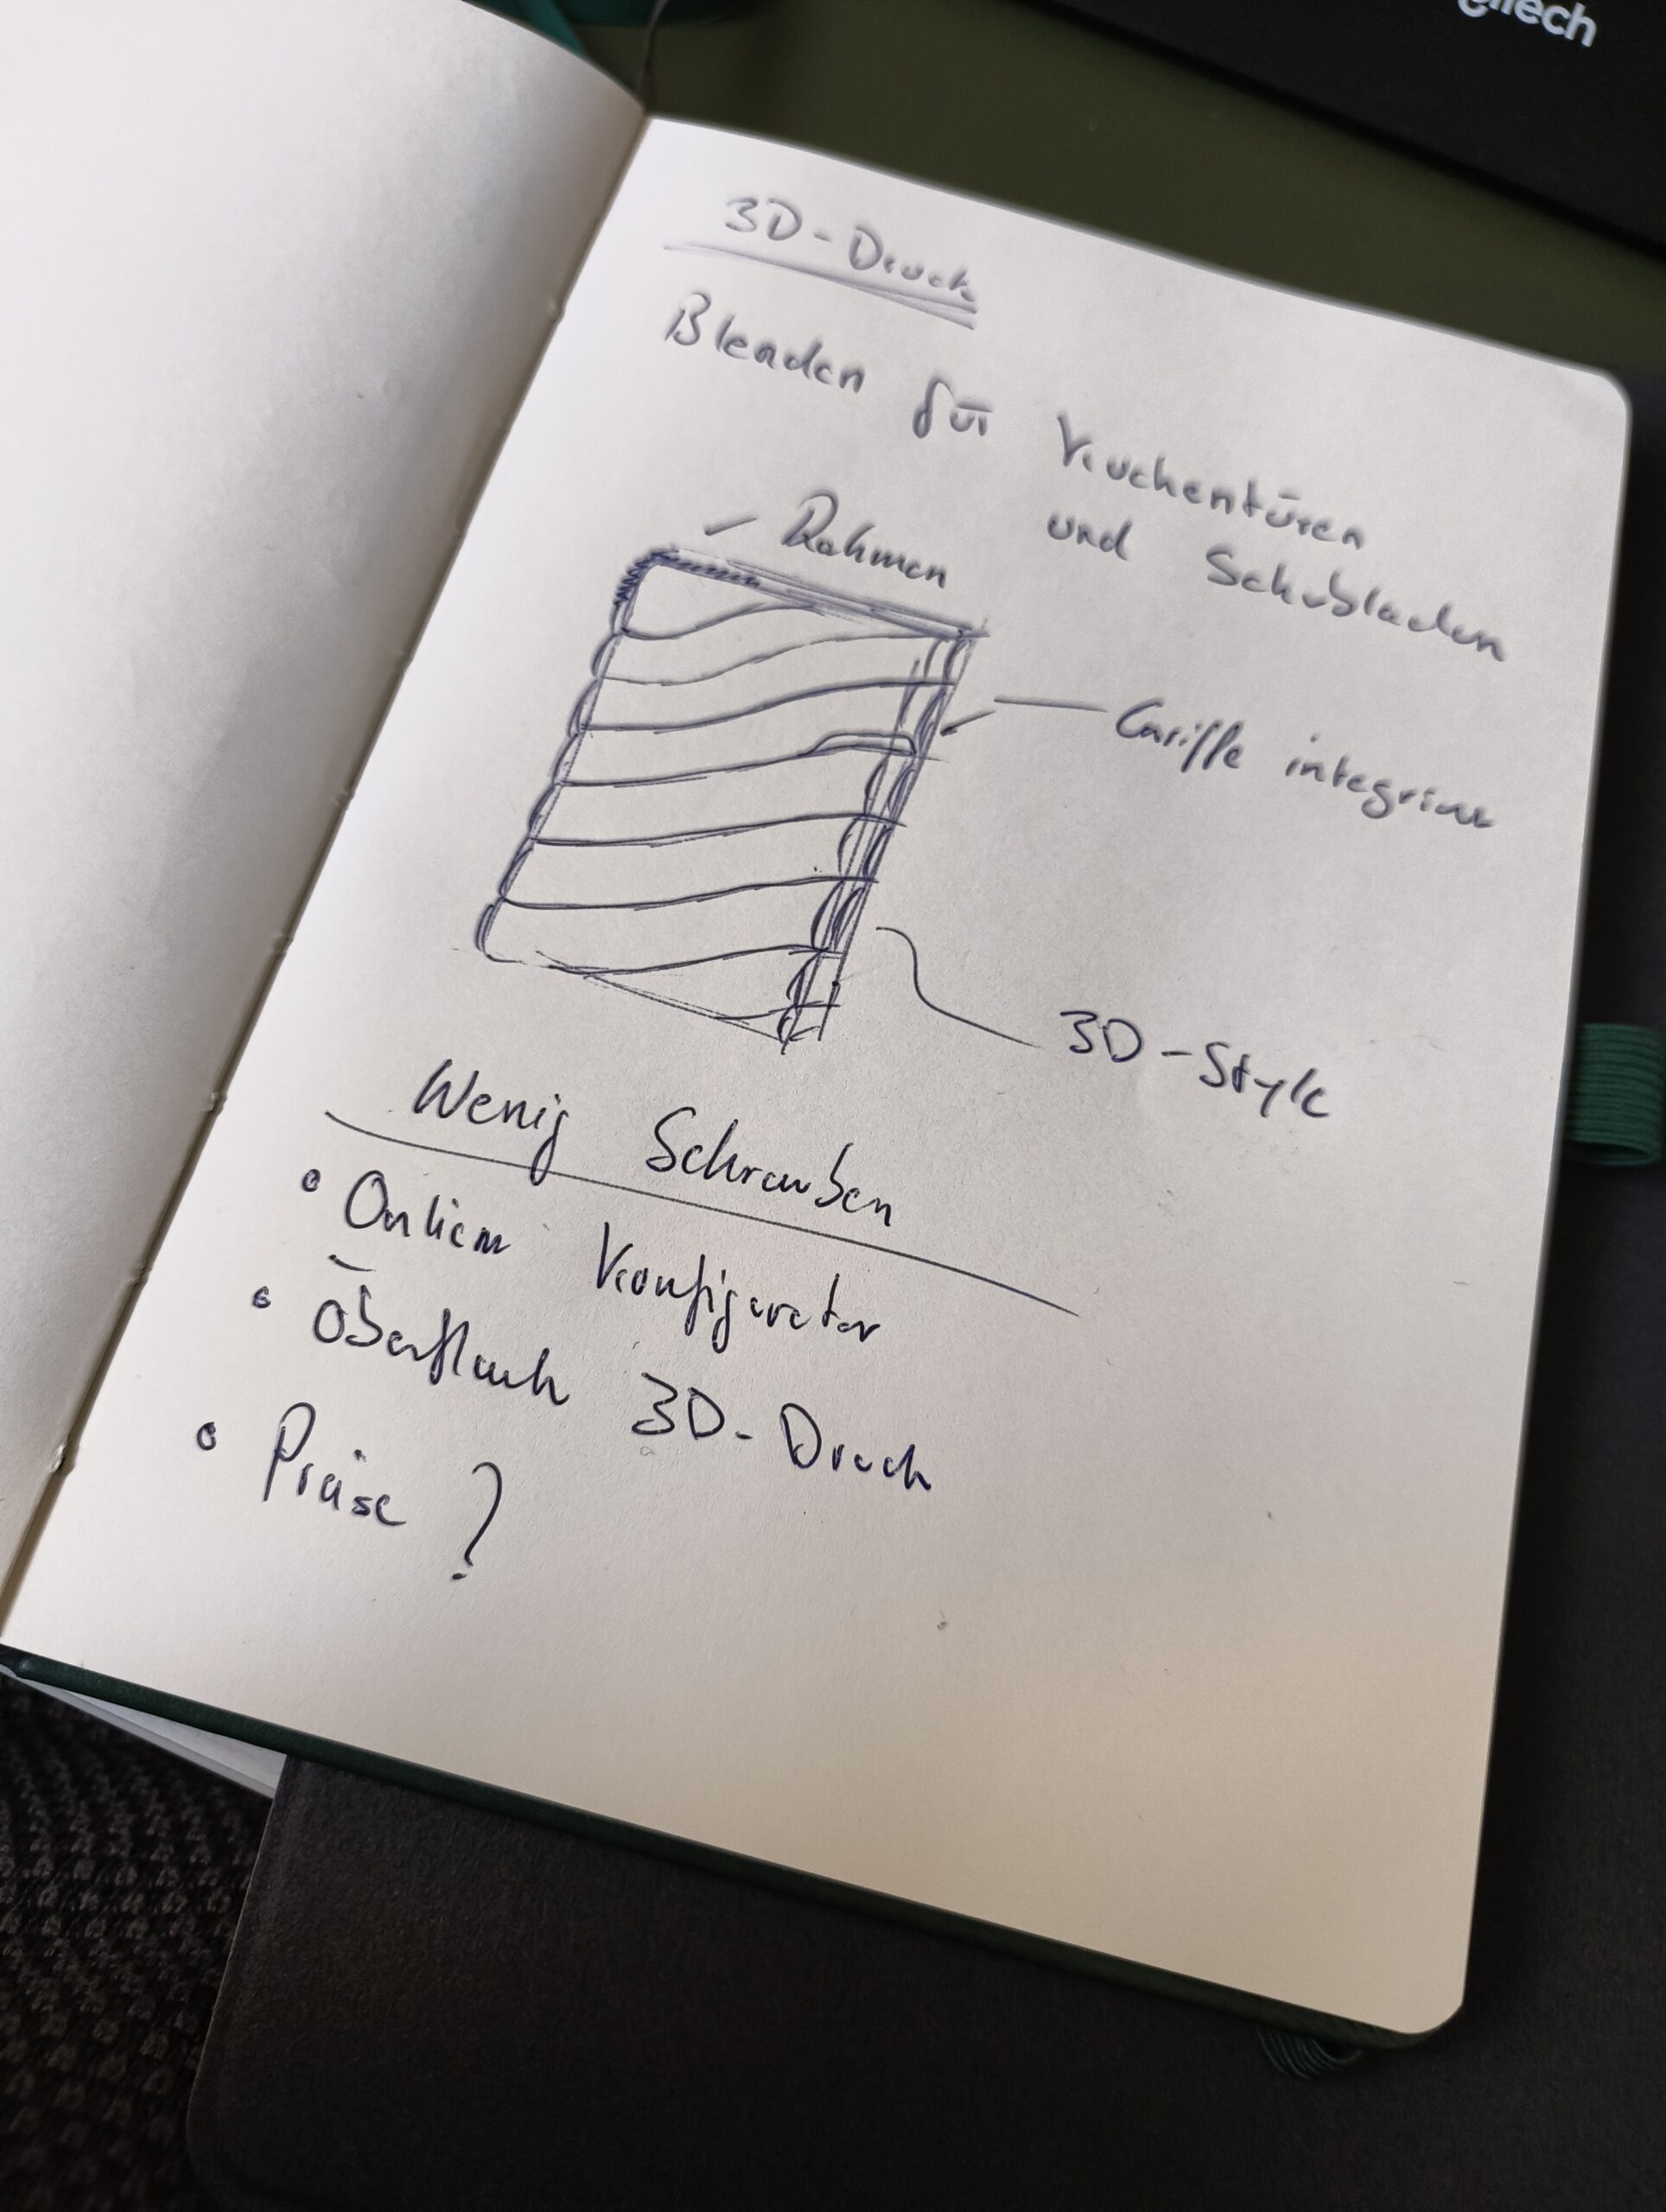 3D-Druck
Blenden für Küchentüren
und Schubladen
Rahmen
Griffe integriert
3D-Style
Wenig Schrauben
• Online Konfigurator
• Oberfläche 3D-Druck
• Preise ?